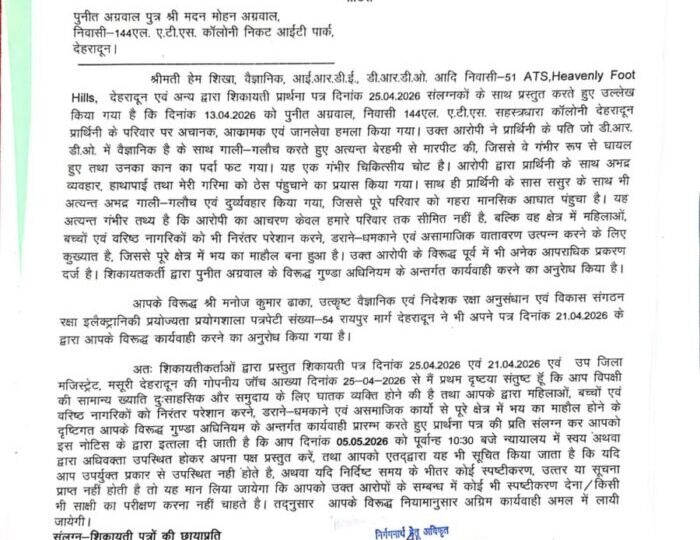 पुनीत अग्रवाल पुत्र श्री मदन मोहन अग्रवाल,
निवासी–144एल. ए.टी.एस. कॉलोनी निकट आईटी पार्क,
देहरादून।
श्रीमती हेम शिखा, वैज्ञानिक, आई.आर.डी.ई., डी.आर.डी.ओ. आदि निवासी–51 ATS,Heavenly Foot
Hills, देहरादून एवं अन्य द्वारा शिकायती प्रार्थना पत्र दिनांक 25.04.2026 संलग्नकों के साथ प्रस्तुत करते हुए उल्लेख
किया गया है कि दिनांक 13.04.2026 को पुनीत अग्रवाल, निवासी 144एल. ए.टी.एस. सहस्त्रधारा कॉलोनी देहरादून
प्रार्थिनी के परिवार पर अचानक, आकामक एवं जानलेवा हमला किया गया। उक्त आरोपी ने प्रार्थिनी के पति जो डी.आर.
डी.ओ. में वैज्ञानिक है के साथ गाली–गलौच करते हुए अत्यन्त बेरहमी से मारपीट की, जिससे वे गंभीर रूप से घायल
हुए तथा उनका कान का पर्दा फट गया। यह एक गंभीर चिकित्सीय चोट है। आरोपी द्वारा प्रार्थिनी के साथ अभद्र
व्यवहार, हाथापाई तथा मेरी गरिमा को ठेस पहुंचाने का प्रयास किया गया। साथ ही प्रार्थिनी के सास ससुर के साथ भी
अत्यन्त अभद्र गाली–गलौच एवं दुर्व्यवहार किया गया, जिससे पूरे परिवार को गहरा मानसिक आघात पहुंचा है। यह
अत्यन्त गंभीर तथ्य है कि आरोपी का आचरण केवल हमारे परिवार तक सीमित नहीं है, बल्कि वह क्षेत्र में महिलाओं,
बच्चों एवं वरिष्ठ नागरिकों को भी निरंतर परेशान करने, डराने–धमकाने एवं असामाजिक वातावरण उत्पन्न करने के लिए
कुख्यात है, जिससे पूरे क्षेत्र में भय का माहौल बना हुआ है। उक्त आरोपी के विरूद्ध पूर्व में भी अनेक आपराधिक प्रकरण
दर्ज है। शिकायतकर्ती द्वारा पुनीत अग्रवाल के विरूद्ध गुण्डा अधिनियम के अन्तर्गत कार्यवाही करने का अनुरोध किया है।
आपके विरूद्ध श्री मनोज कुमार ढाका, उत्कृष्ट वैज्ञानिक एवं निदेशक रक्षा अनुसंधान एवं विकास संगठन
रक्षा इलैक्ट्रानिकी प्रयोज्यता प्रयोगशाला पत्रपेटी संख्या–54 रायपुर मार्ग देहरादून ने भी अपने पत्र दिनांक 21.04.2026 के
द्वारा आपके विरूद्ध कार्यवाही करने का अनुरोध किया गया है।
अतः शिकायतकर्ताओं द्वारा प्रस्तुत शिकायती पत्र दिनांक 25.04.2026 एवं 21.04.2026 एवं उप जिला
मजिस्ट्रेट, मसूरी देहरादून की गोपनीय जाँच आख्या दिनांक 25–04–2026 से मैं प्रथम दृष्टया संतुष्ट हूँ कि आप विपक्षी
की सामान्य ख्याति दुःसाहसिक और समुदाय के लिए घातक व्यक्ति होने की है तथा आपके द्वारा महिलाओं, बच्चों एवं
वरिष्ठ नागरिकों को निरंतर परेशान करने, डराने–धमकाने एवं असमाजिक कार्यो से पूरे क्षेत्र में भय का माहौल होने के
दृष्टिगत आपके विरूद्ध गुण्डा अधिनियम के अन्तर्गत कार्यवाही प्रारम्भ करते हुए प्रार्थना पत्र की प्रति संलग्न कर आपको
इस नोटिस के द्वारा इत्तला दी जाती है कि आप दिनांक 05.05.2026 को पूर्वान्ह 10:30 बजे न्यायालय में स्वय अथवा
द्वारा अधिवक्ता उपस्थित होकर अपना पक्ष प्रस्तुत करें, तथा आपको एतद्द्वारा यह भी सूचित किया जाता है कि यदि
आप उपर्युक्त प्रकार से उपस्थित नही होते है, अथवा यदि निर्दिष्ट समय के भीतर कोई स्पष्टीकरण, उत्तर या सूचना
प्राप्त नहीं होती है तो यह मान लिया जायेगा कि आपको उक्त आरोपों के सम्बन्ध में कोई भी स्पष्टीकरण देना/किसी
भी साक्षी का परीक्षण करना नही चाहते है। तद्नुसार आपके विरूद्ध नियामानुसार अग्रिम कार्यवाही अमल में लायी
जायेगी।
संलग्न–शिकायती पत्रों की छायाप्रति
निर्गमनार्थ हेतु अधिकृत